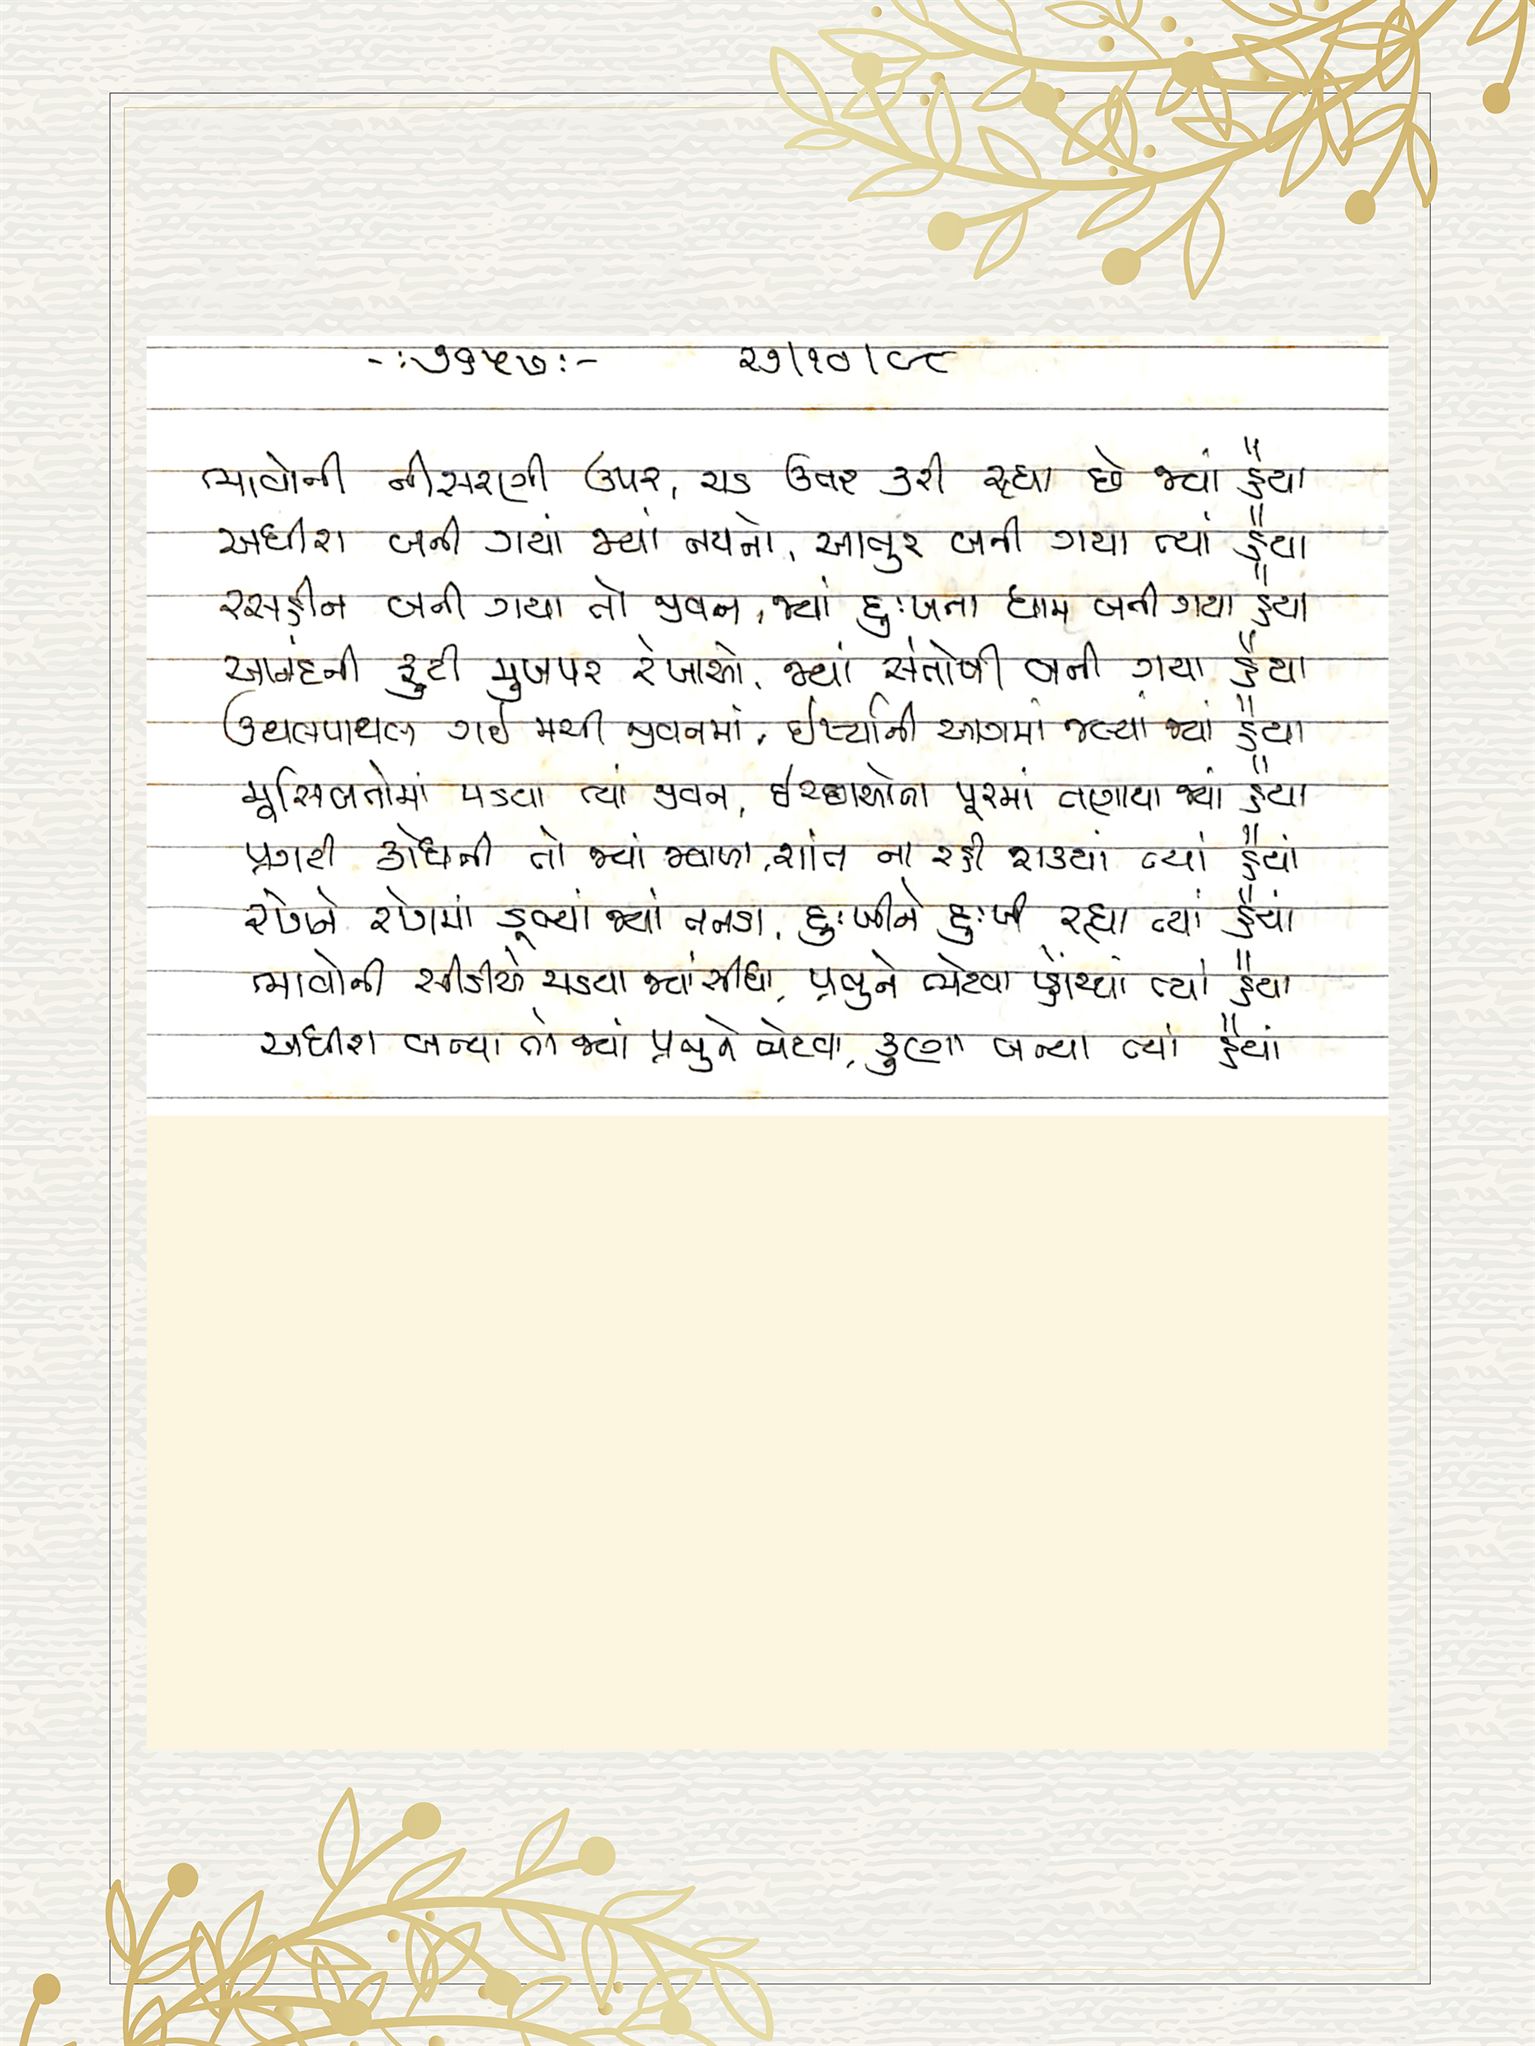 -:૭૬૫૭:- ૨૭/૧૦/૯૮
ભાવોની નીસરણી ઉપર, ચડ ઉતર કરી રહ્યા છે જ્યાં હૈયા
અધીરા બની ગયાં જ્યાં નયનો, આતુર બની ગયા ત્યાં હૈયા
રસહીન બની ગયા તો જીવન, જ્યાં દુઃખના ધામ બની ગયા હૈયાં
આનંદની ફુટી મુખપર રેખાઓ, જ્યાં સંતોષી બની ગયા હૈયા
ઉથલપાથલ ગઈ મચી જીવનમાં, ઈર્ષ્યાની આગમાં જલ્યાં જ્યાં હૈયા
મૂસિબતોમાં પડયા ત્યાં જીવન, ઈચ્છાઓના પૂરમાં તણાયા જ્યાં હૈયા
પ્રગટી ક્રોધની તો જ્યાં જ્વાળા, શાંત ના રહી શક્યાં ત્યાં હૈયાં
રોગને રોગમાં ડૂબ્યાં જ્યાં તનડા, દુઃખીને દુઃખી રહ્યા ત્યાં હૈયાં
ભાવોની સીડીએ ચડયા જ્યાં સીધા, પ્રભુને ભેટવા પ્હોંચ્યાં ત્યાં હૈયા
અધીરા બન્યા તો જ્યાં પ્રભુને ભેટવા, કુણા બન્યા ત્યાં હૈયાં